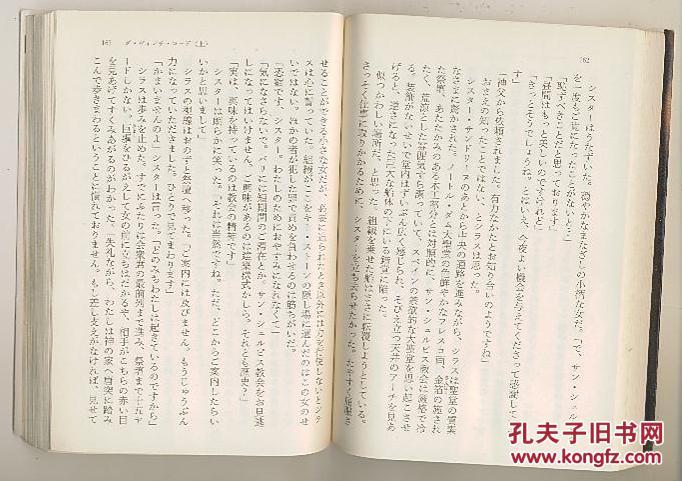 162
シスターはうなずいた。穏やかなまなざしの小柄な女だ。「で、サン・シュル
を一度もご覧になったことがないと？」
「恥ずべきことだと思っております」
「昼間はもっと美しいのですけれど」
「きっとそうでしょうね。とはいえ、今夜よい機会を与えてくださって感謝して
す」
「神父から依頼されました。有力なかたとお知り合いのようですね」
おまえの知ったことではない、とシラスは思った。
シスター・サンドリーヌのあとから中央の通路を進みながら、シラスは聖堂の質実
なさまに驚かされた。ノートル・ダム大聖堂の色鮮やかなフレスコ画、金箔の施され
た祭壇、あたたかみのある木工部分とは対照的に、サン・シュルピス教会は厳格で冷
たく、荒涼とした雰囲気すら漂っていて、スペインの禁欲的な大聖堂を思い起こさせ
る。装飾がないせいで堂内はずいぶん広く感じられ、そびえ立つ天井のアーチを見あ
げると、逆さになった巨大な船体の下にいる錯覚に陥った。
似つかわしい場所だ、と思った。組織を乗せた船はまさに転覆しようとしている。
さっそく仕事に取りかかるために、シスターを立ち去らせたかった。たやすく屈服さ
163 ダ・ヴィンチ・コード（上）
せることができる小さな女だが、必要に迫られたとき以外には力を行使しないとシラ
スは心に誓っていた。組織がここをキー・ストーンの隠し場に選んだのはこの女のせ
いではない。ほかの者が犯した罪で責めを負わせるのは筋ちがいだ。
「恐縮です、シスター。わたしのためにおやすみになれなくて」
「気になさらないで。パリには短期間のご滞在とか。サン・シュルピス教会をお見逃
しになってはいけません。ご興味があるのは建築様式かしら、それとも歴史？」
「実は、興味を持っているのは教会の精神です」
シスターは朗らかに笑った。「それは当然ですね。ただ、どこからご案内したらい
いかと思いまして」
シラスの視線はおのずと祭壇へ移った。「ご案内には及びません。もうじゅうぶん
力になっていただきました。ひとりで見てまわります」
「かまいませんのよ」シスターは言った。「どのみちわたしは起きているのですから」
シラスは歩みを止めた。すでにふたりは会衆席の最前列まで進み、祭壇まで十五ヤ
ードしかない。巨躯をひるがえして女の前に立ちはだかるや、相手がこちらの赤い目
を見あげてすくみあがるのがわかった。「失礼ながら、わたしは神の家へ唐突に踏み
こんで歩きまわるということに慣れておりません。もし差し支えがなければ、見せて
孔夫子旧书网
www.kongfz.com